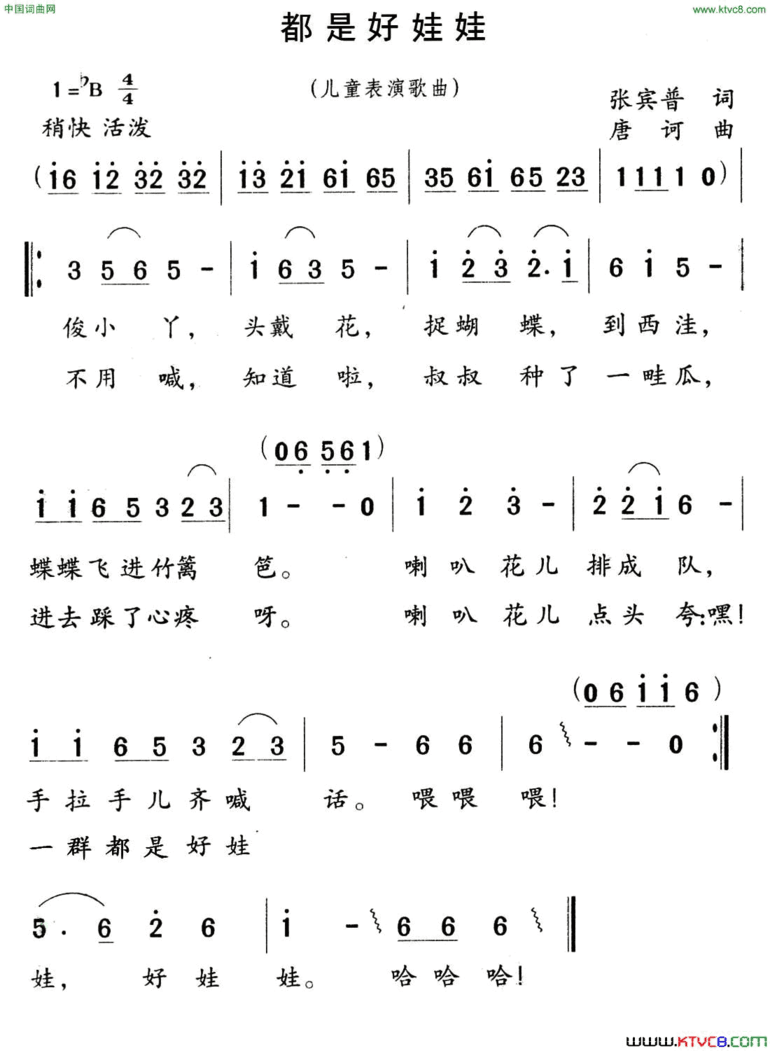 中国词曲网
www.ktvc8.com
都是好娃娃
1=♭B 4/4
(儿童表演歌曲)
张宾普 词
稍快 活泼
唐诃 曲
(i6 i2 32 32 | i3 2i 6i 65 | 35 6i 65 23 | 1 1 1 1 0)
‖: 3 5 6 5 - | i 6 3 5 - | i 2 3 2. i | 6 i 5 - |
俊小 丫, 头戴 花, 捉蝴 蝶, 到西洼,
不用 喊, 知道 啦, 叔叔 种了 一畦瓜,
(06 561)
i i 6 5 3 2 3 | 1 - - 0 | i 2 3 - | 2 2 i 6 - |
蝶蝶飞进竹篱 笆。 喇叭 花儿 排成 队,
进去踩了心疼 呀。 喇叭 花儿 点头 夸:嘿!
(06 i i 6)
i i 6 5 3 2 3 | 5 - 6 6 | 6 - - 0 :‖
手拉手儿齐喊 话。 喂喂 喂!
一群都是好娃
5. 6 2 6 | i - 6 6 6 ‖
娃, 好娃 娃。 哈哈哈!
www.KTVC8.com